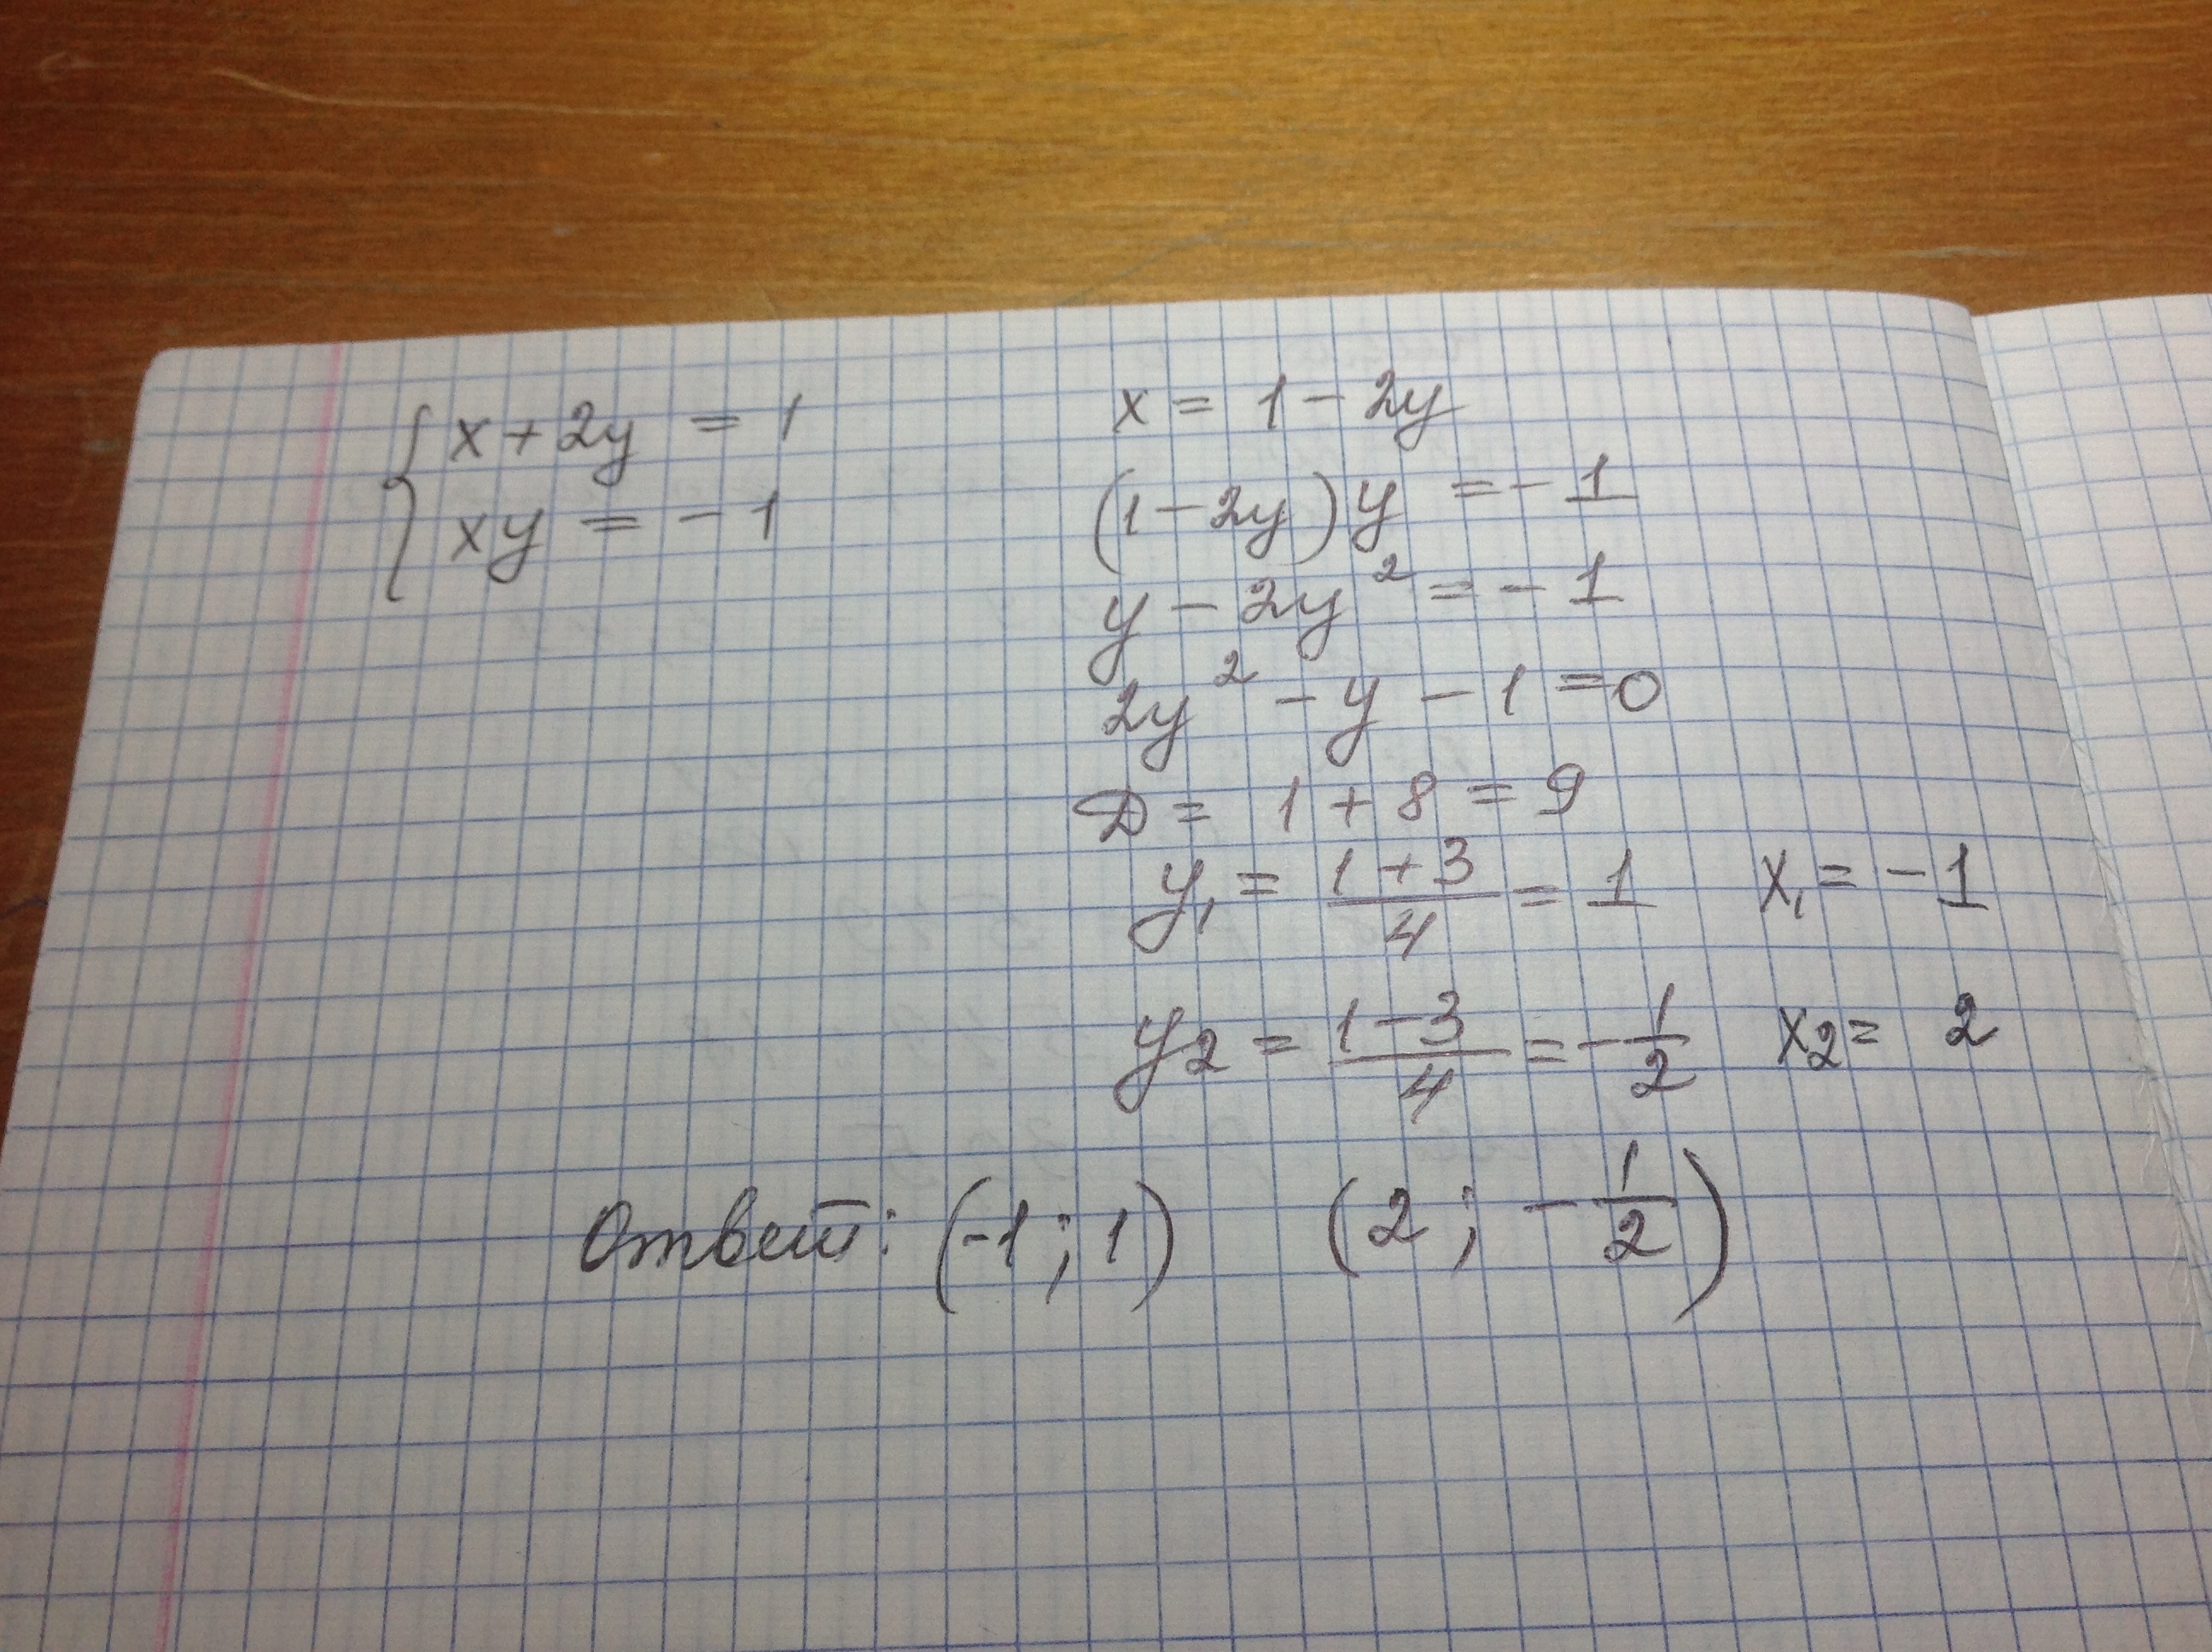 { x + 2y = 1
xy = - 1
x = 1 - 2y
(1 - 2y) y = - 1
y - 2y² = - 1
2y² - y - 1 = 0
Д = 1 + 8 = 9
y₁ = (1 + 3)/4 = 1 x₁ = - 1
y₂ = (1 - 3)/4 = - 1/2 x₂ = 2
Ответ: (-1; 1) (2; - 1/2)